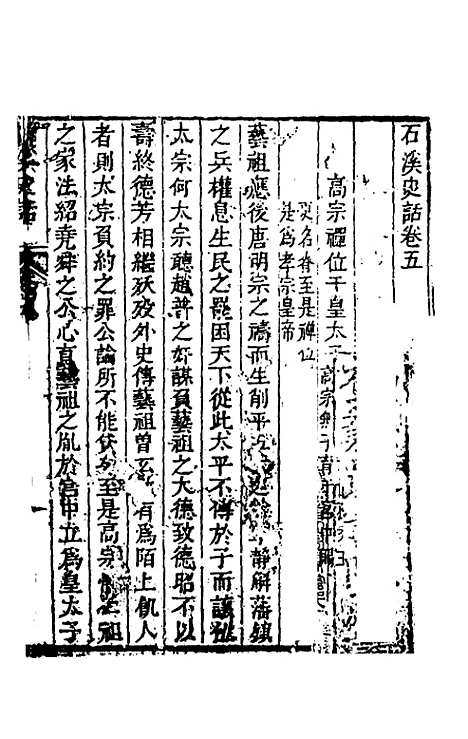 石溪史話卷五
高宗禪位于皇太子高宗無子育
更名眘至是禪位
是為孝宗皇帝
藝祖應後唐明宗之禱而生削平靜解藩鎮
之兵權息生民之罷困天下從此太平不傳於子而讓
太宗何太宗聽趙普之奸謀負藝祖之大德致德昭不以
壽終德芳相繼殀歿外史傳藝祖曾有為陌上飢人
者則太宗負約之罪公論所不能至是高宗祖
之家法紹堯舜之公心育藝祖之胤於宮中立為皇太子